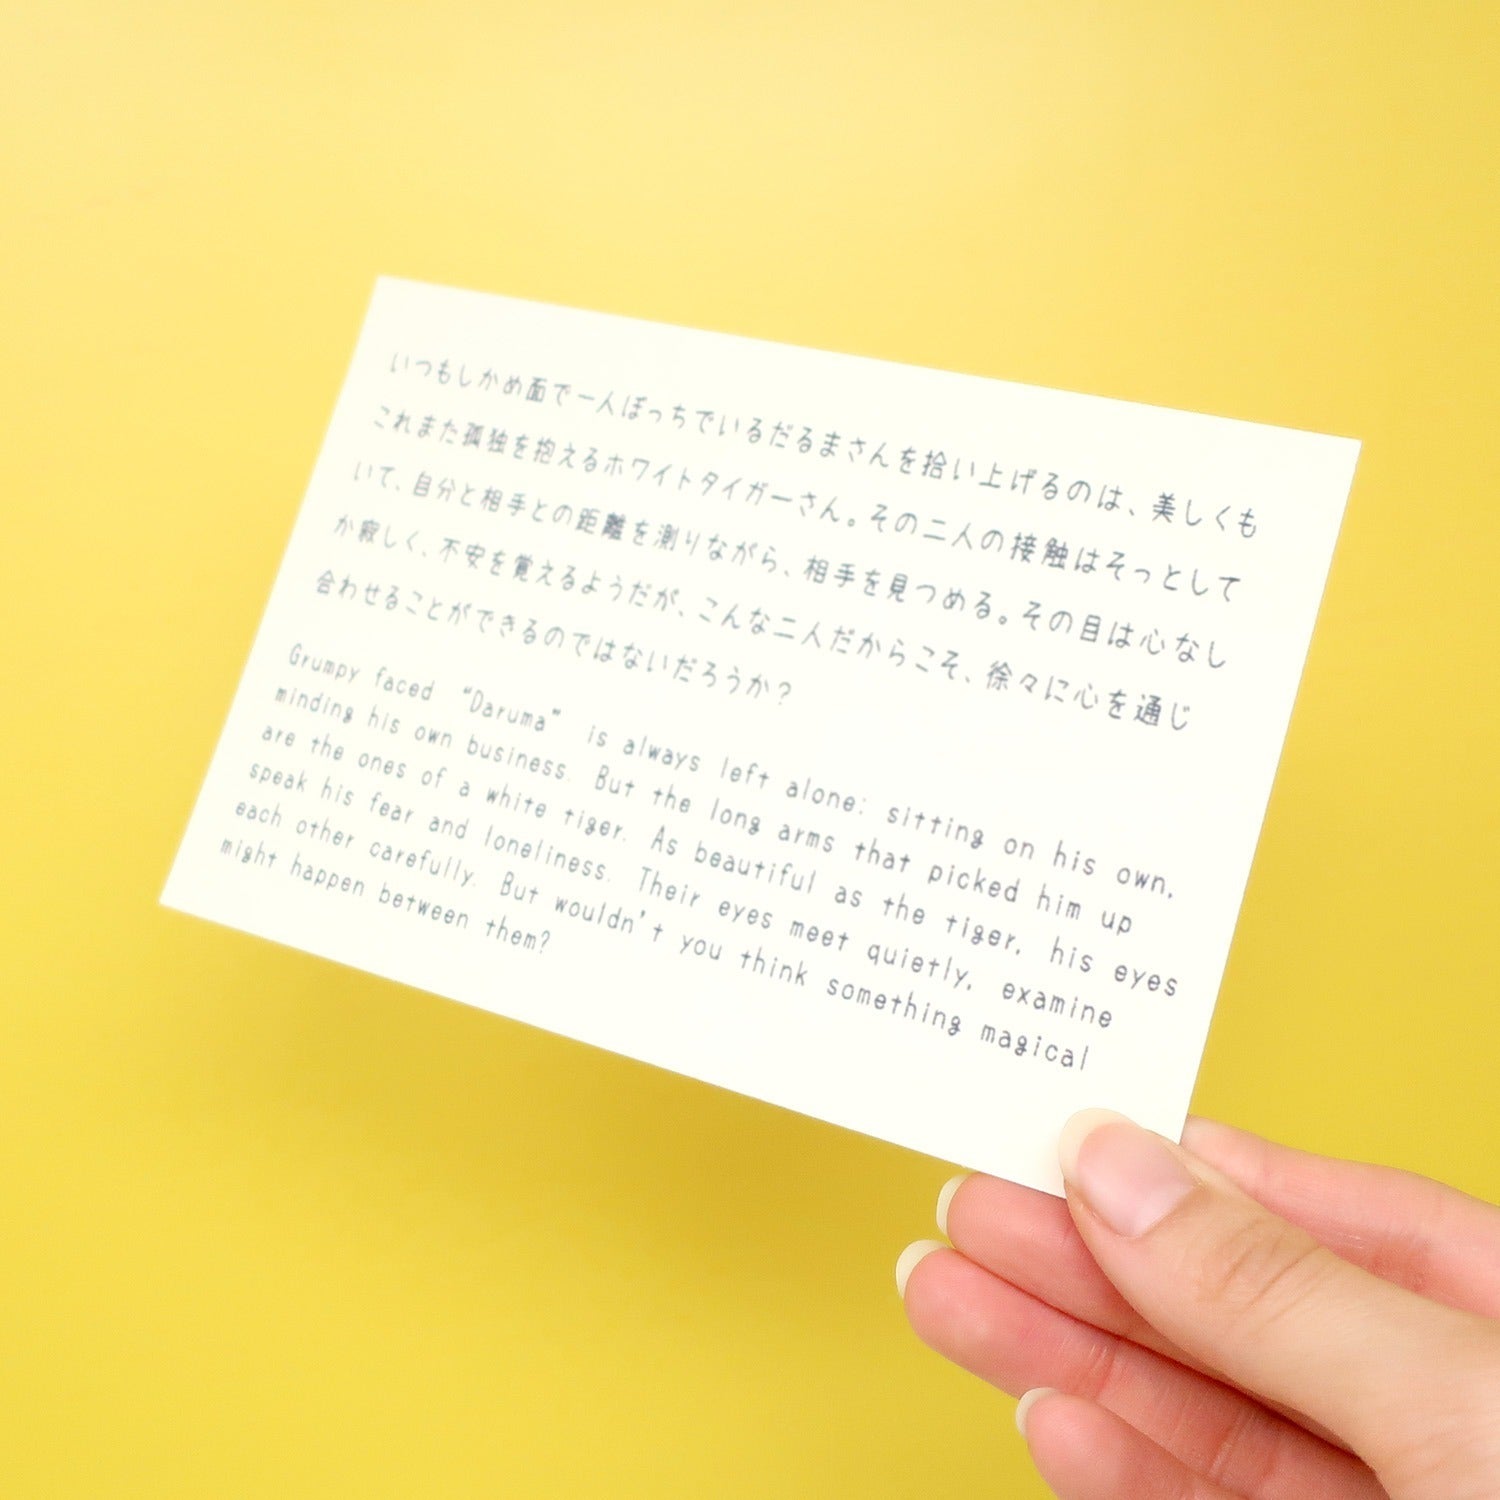 いつもしかめ面で一人ぼっちでいるだるまさんを拾い上げるのは、美しくも
これまた孤独を抱えるホワイトタイガーさん。その二人の接触はそっとして
いて、自分と相手との距離を測りながら、相手を見つめる。その目は心なし
か寂しく、不安を覚えるようだが、こんな二人だからこそ、徐々に心を通じ
合わせることができるのではないだろうか？
Grumpy faced “Daruma” is always left alone: sitting on his own,
minding his own business. But the long arms that picked him up
are the ones of a white tiger. As beautiful as the tiger, his eyes
speak his fear and loneliness. Their eyes meet quietly, examine
each other carefully. But wouldn't you think something magical
might happen between them?